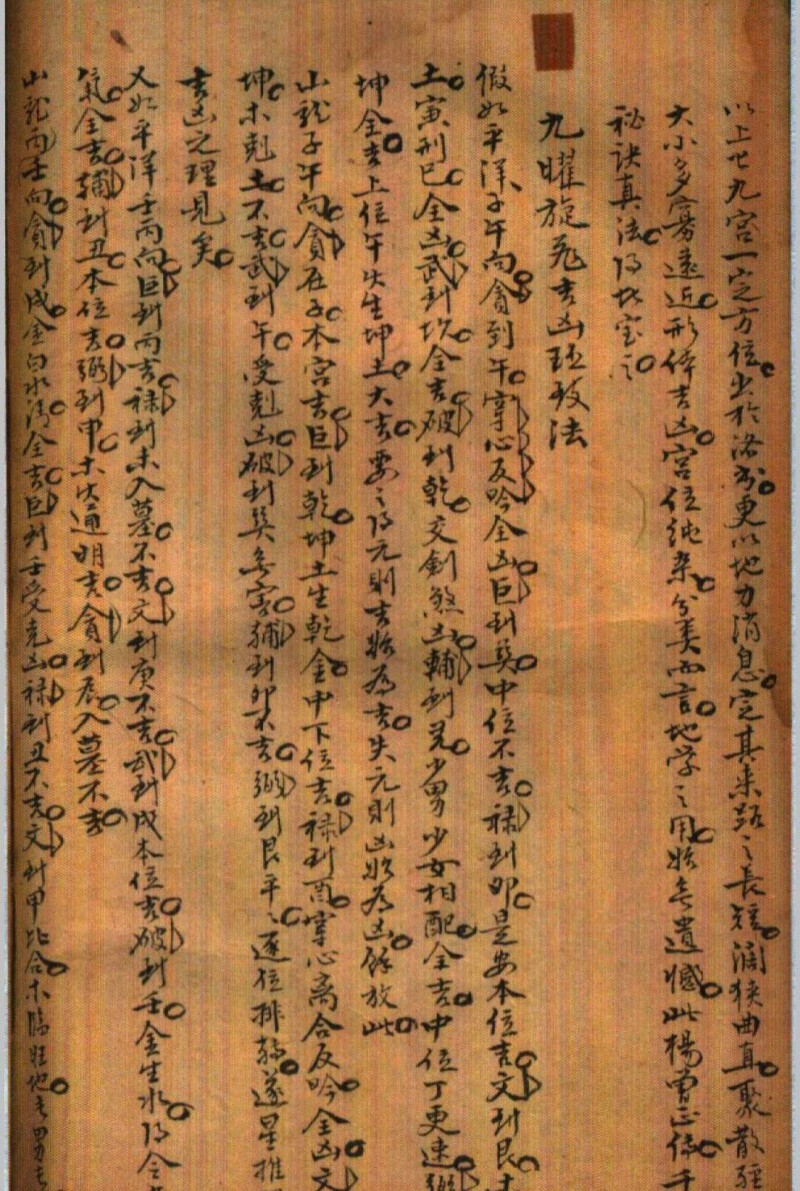 以上七九宮一定方位出於洛書更以地力消息定其來路之長短濶狹曲直聚散
大小多寡遠近形体吉凶宮位純杂分类而言地学之用始無遺憾此楊曾正傳
秘訣真法得此宝之
九曜旋飛吉凶珏孜法
假如平洋子午向貪到午穿心反吟全凶巨到巽中位不吉禄到卯是安本位吉文到艮土
土寅刑巳全凶武到坎全吉破到乾交劍煞凶輔到兑少男少女相配全吉中位丁更速弼
坤全吉上位午火生坤土大吉要之得元則吉始為吉失元則凶始為凶餘放此
山龍子午向貪在子本宮吉巨到乾坤土生乾金中下位吉禄到酉穿心离合反吟全凶文
坤木剋土不吉武到午受剋凶破到巽無害辅到卯不吉弼到艮平之逐位排轉逐星推
吉凶之理見矣
又如平洋壬丙向巨到丙吉禄到未入墓不吉文到庚不吉武到戌本位吉破到壬金生水得令
氣全吉辅到丑本位吉弼到甲木火通明吉貪到辰入墓不吉
山龍丙壬向貪到戌金白水清全吉巨到壬受克凶禄到丑不吉文到甲比合木臨旺地主男